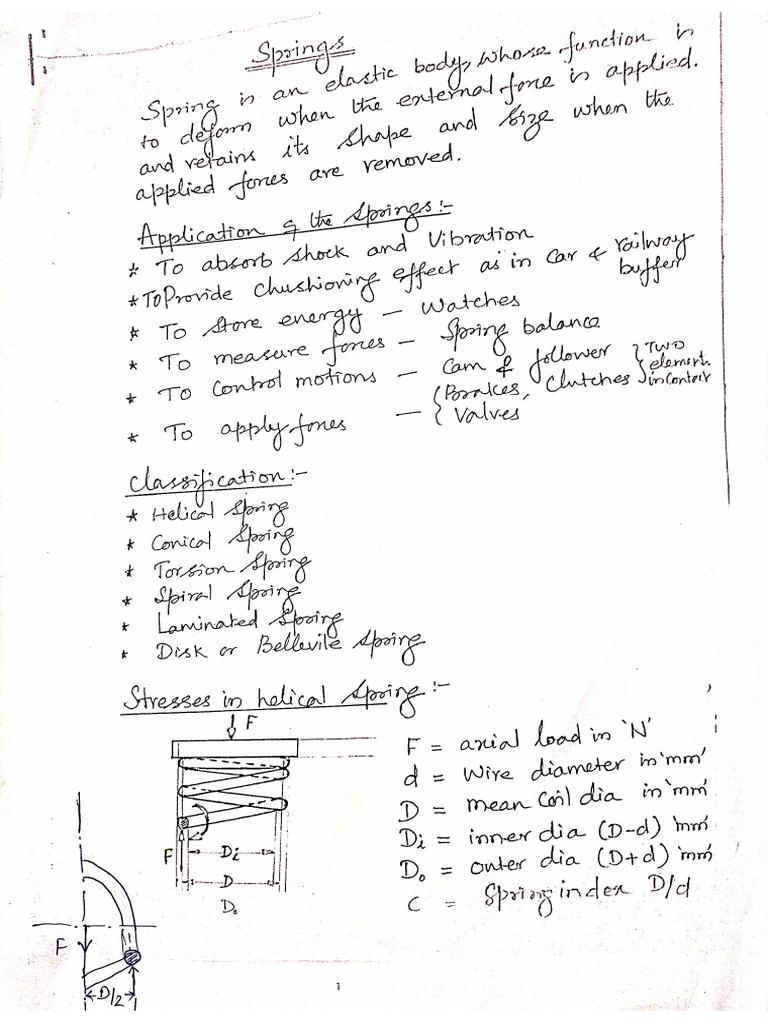 Springs
Spring is an elastic body, whose function is
to deform when the external force is applied.
and retains its shape and size when the
applied forces are removed.
Application of the springs:-
* To absorb shock and Vibration
* To Provide Chushioning effect as in car & railway
buffer
* To store energy - Watches
* To measure forces - Spring balance
* To Control motions - Cam & follower } Two
elements
in contact
* To apply forces - { Brakes, Clutches
Valves
Classification:-
* Helical Spring
* Conical Spring
* Torsion Spring
* Spiral Spring
* Laminated Spring
* Disk or Bellevile Spring
Stresses in helical Spring:-
F
F = axial load in 'N'
d = Wire diameter in 'mm'
D = mean Coil dia in 'mm'
Di = inner dia (D-d) 'mm'
Do = outer dia (D+d) 'mm'
C = Spring index D/d
F
Di
D
Do
F
D/2
1